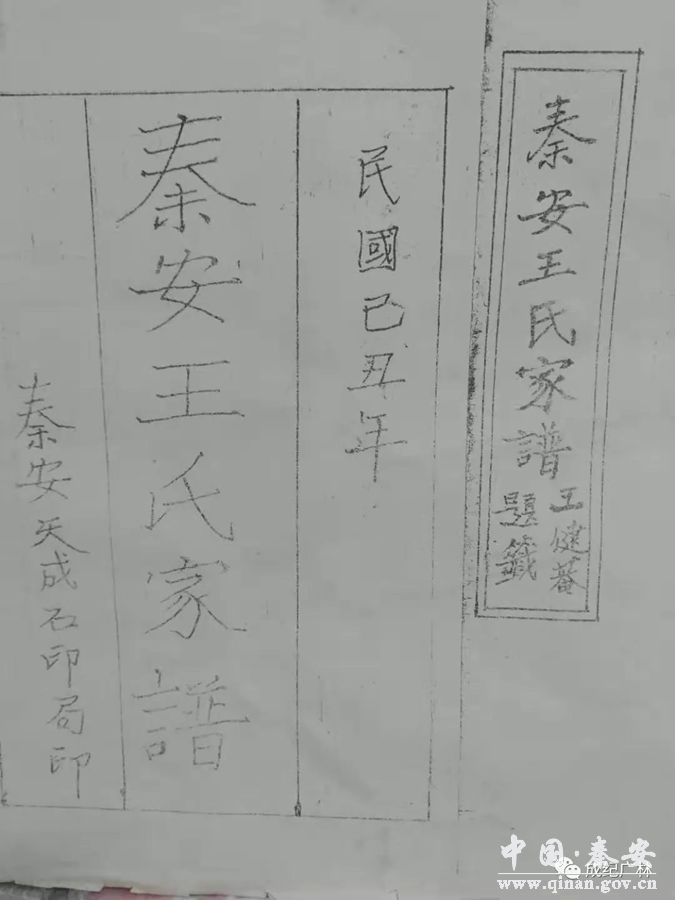 秦安王氏家譜
王健菴
題籤
民國己丑年
秦安王氏家譜
秦安天成石印局印
中国·秦安
成纪广林
www.qinan.gov.cn